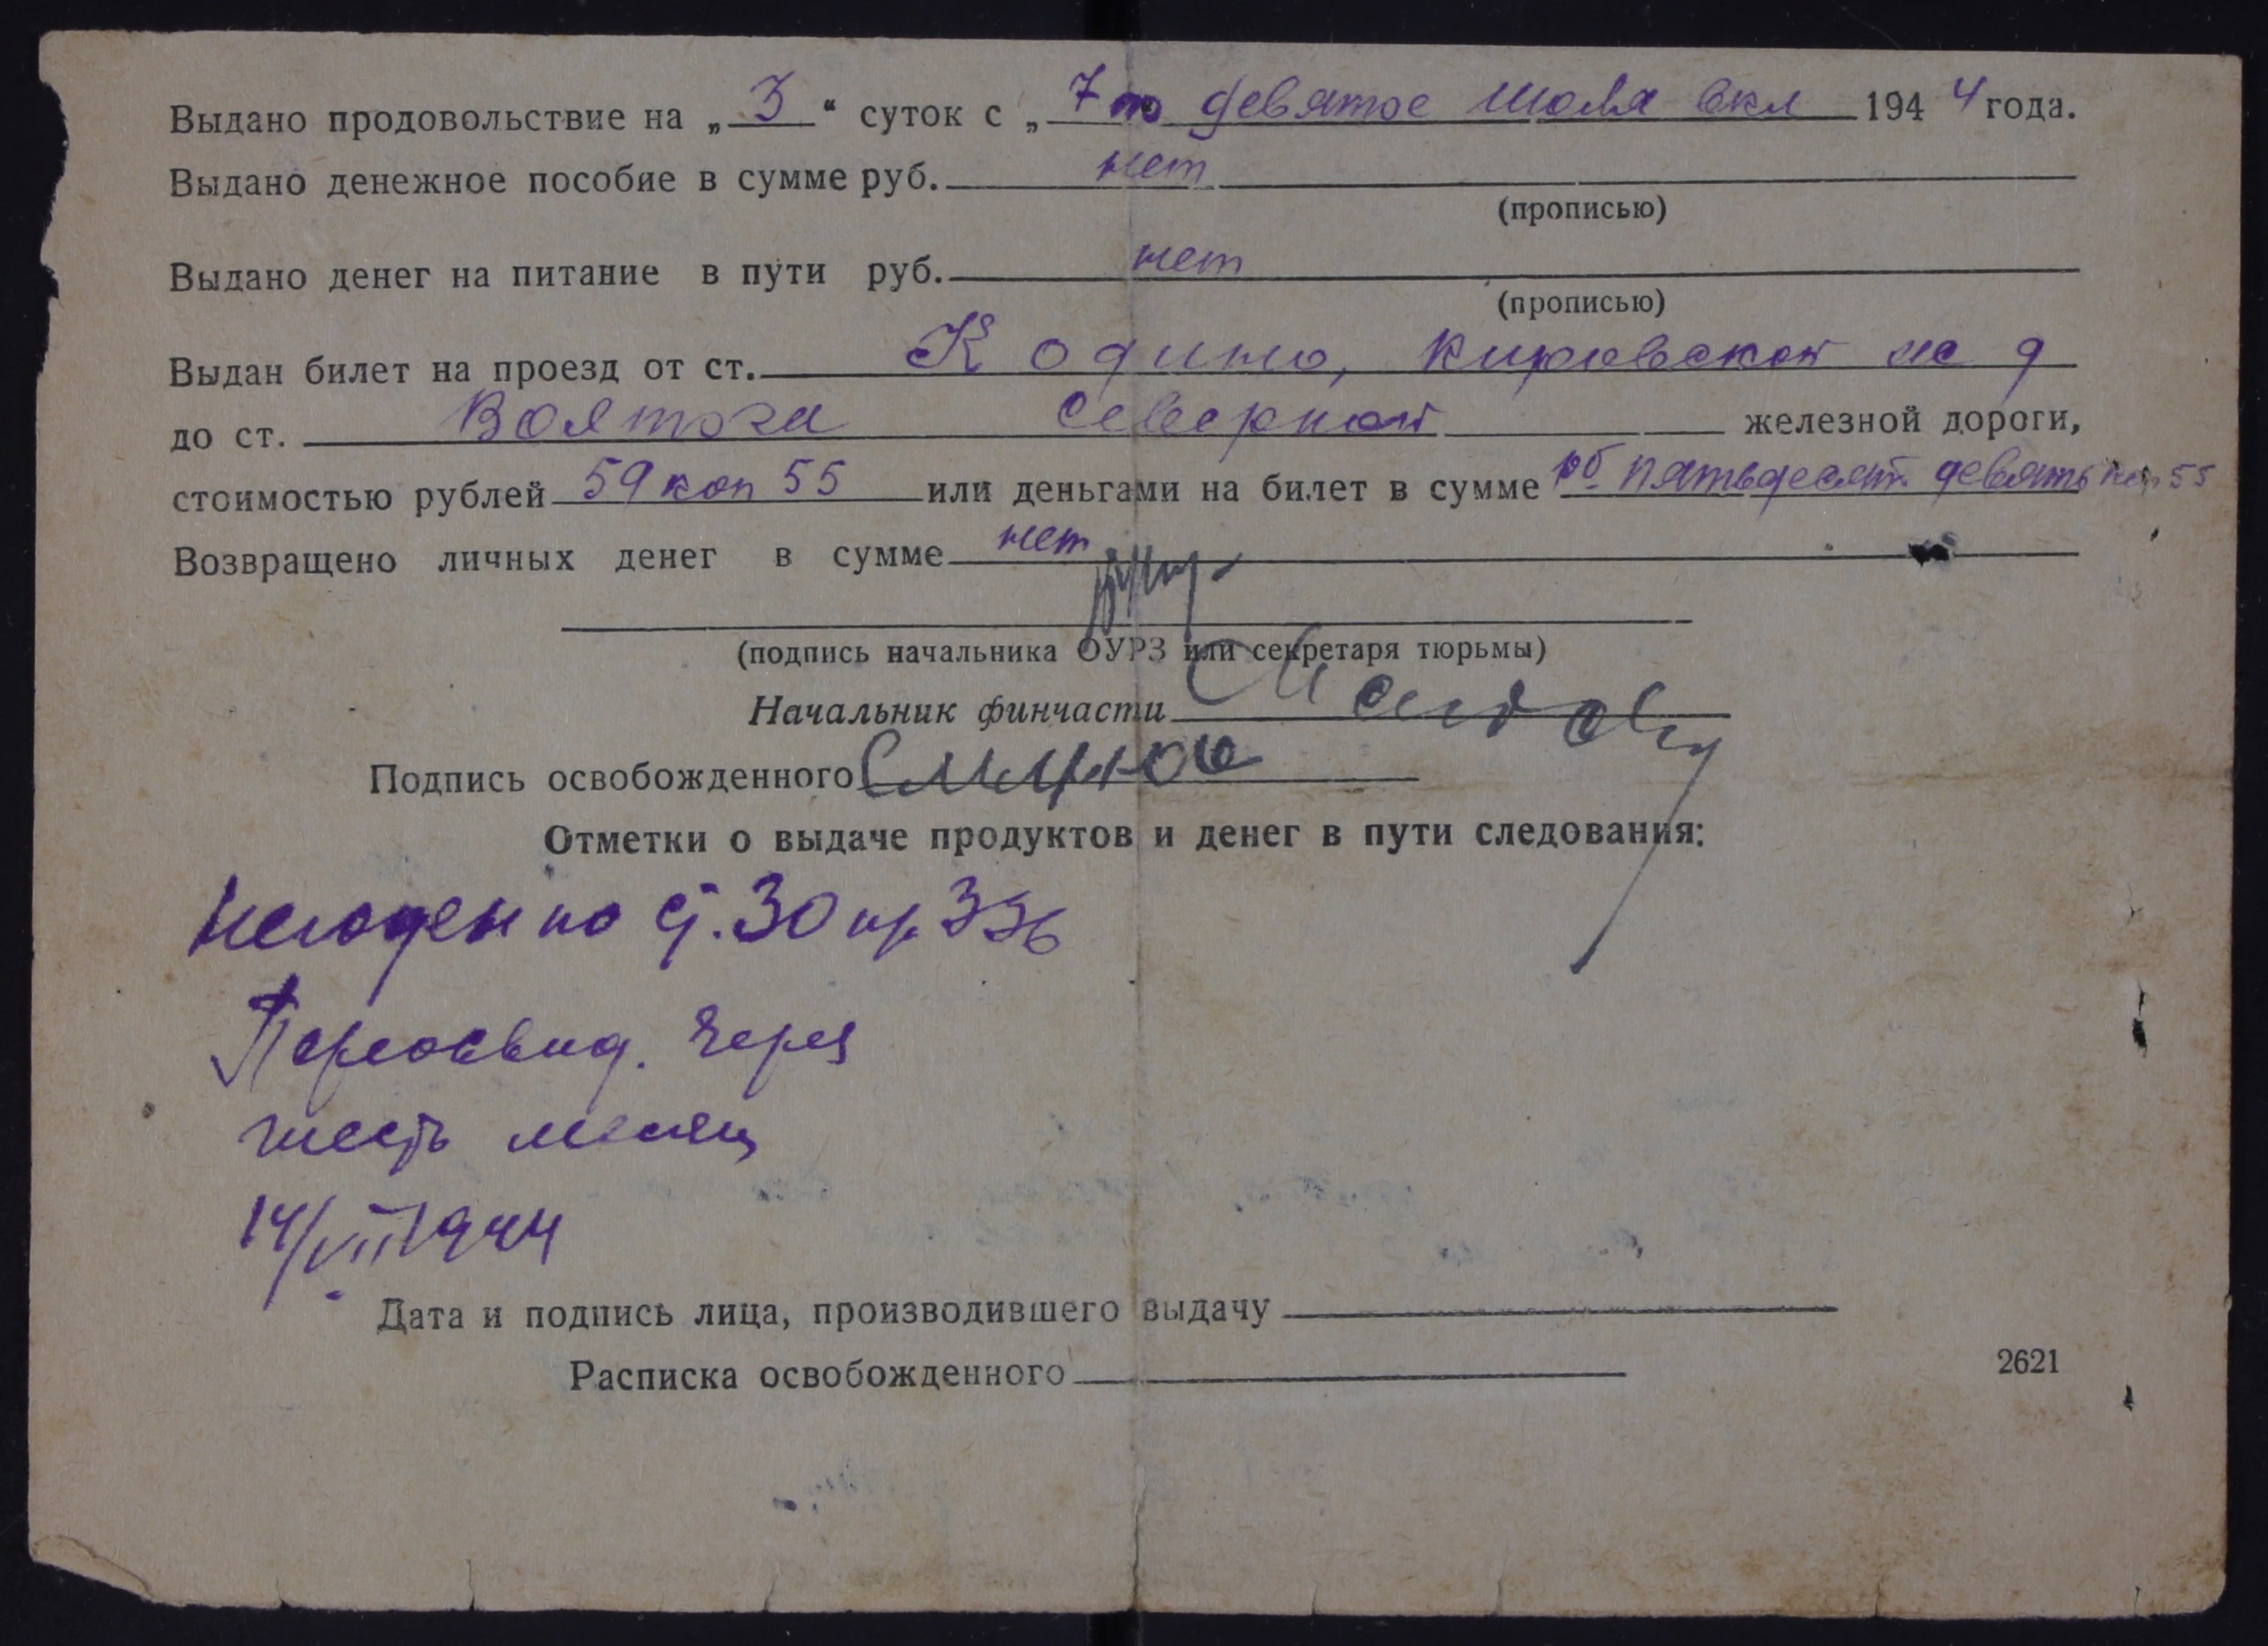 Выдано продовольствие на „3“ суток с „7 по девятое июля вкл 1944 года.
Выдано денежное пособие в сумме руб. нет
(прописью)
Выдано денег на питание в пути руб. нет
(прописью)
Выдан билет на проезд от ст. Кодино, Кировской ж д
до ст. Северной железной дороги,
стоимостью рублей 59 коп 55 или деньгами на билет в сумме рб пятьдесят девять коп 55
Возвращено личных денег в сумме нет
(подпись начальника ОУРЗ или секретаря тюрьмы)
Начальник финчасти
Подпись освобожденного
Отметки о выдаче продуктов и денег в пути следования:
Негоден по ст. 30 пр. 336
Переосвид. через
шесть месяц
14/VII 1944
Дата и подпись лица, производившего выдачу
Расписка освобожденного
2621